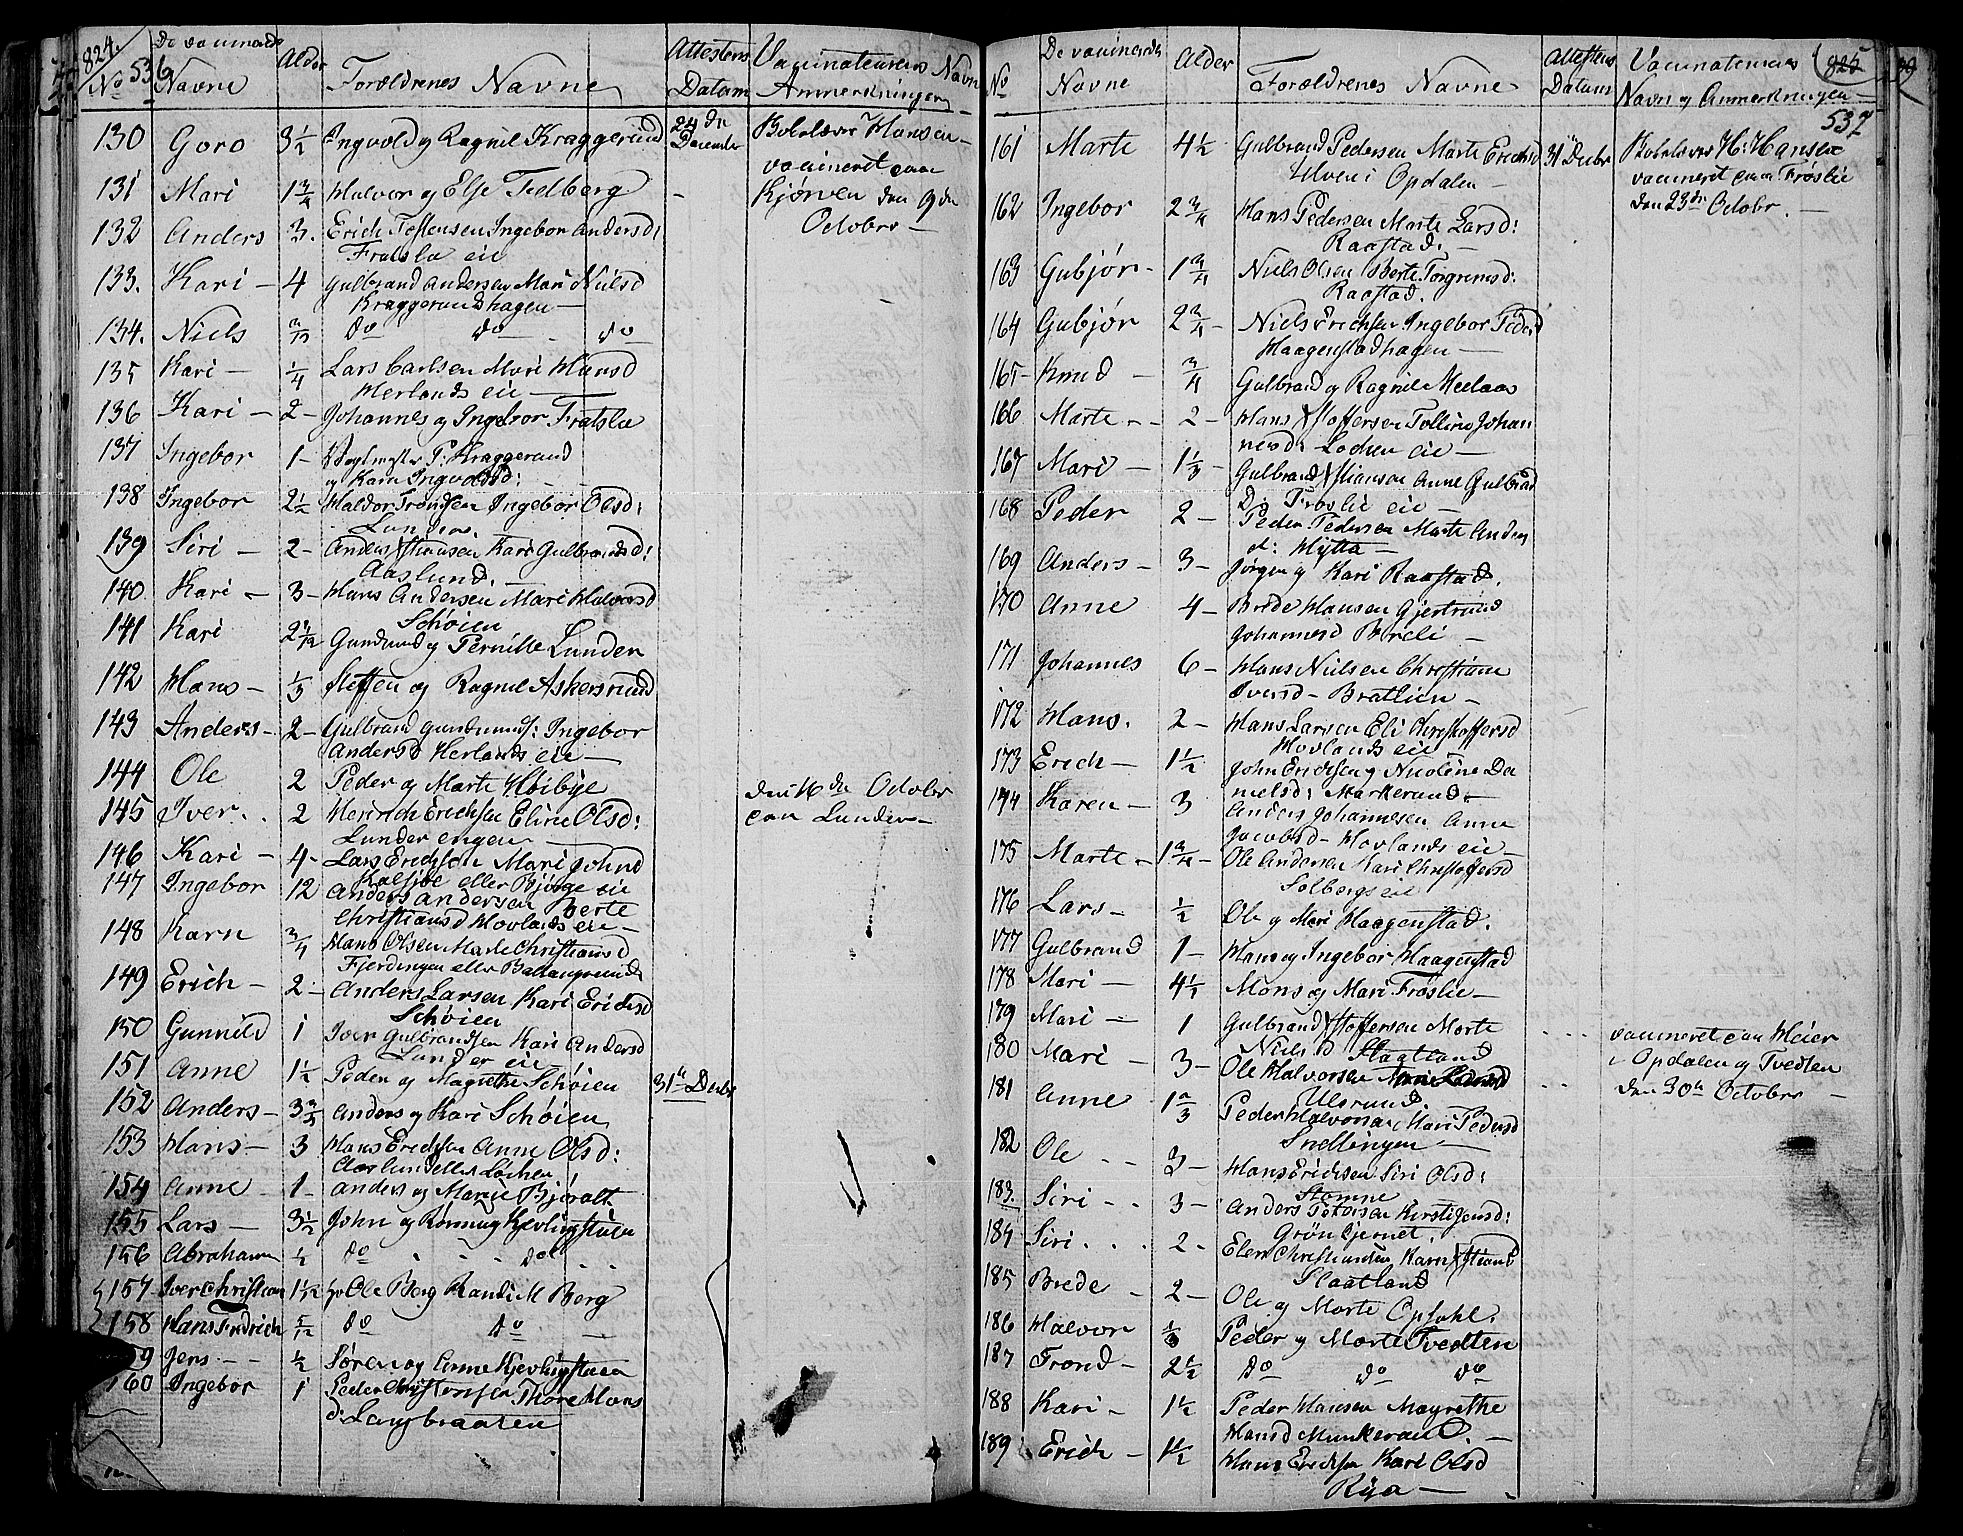 824.
536
No
De vaccinerede
Navne
Alder
Forældrenes Navne
Attestens
Datum
Vaccinateurens Navn
Anmerkninger
130 Goro 3½ Ingvold og Ragnil Kraggerund 24 de December
Hansen
vaccineret paa
131 Mari 1¾ Halvor og Else Tedberg - Kjørven den 9de
132 Anders 3. Erich Tostensen Ingebor Andersd: Octobr
Fratslæ eie
133. Kari - 4 Gulbrand Andersen Mari Nielsd
Kraggerundshagen
134. Niels do do do
135 Kari - ¼ Lars Carlsen Mari Hansd
Herlands eie
136 Kari - 2 - Johannes og Ingebor Fratslæ
137 Ingebor 1 - P: Kraggerund
og Kari Ingvoldsd:
138 Ingebor 2½ Haldor Trondsen Ingebor Olsd:
Lunder
139 Siri - 2 - Anders Kari Gulbrandsd:
Aaslund.
140 Kari - 3 - Hans Andersen Mari Halvorsd
Schøien
141 Kari Gundmund og Pernille Lunder
142 Hans - ⅓ Steffen og Ragnil Askersrud
143 Anders - 2 - Gulbrand Gundmunds: Ingebor
Andersd Herlands eie
144 Ole 2 Peder og Marte Høibye den 16de Octobr
145 Iver 2 Henrich Erichsen Eline Olsd: paa Lunder
Lunder engen
146 Kari - 4 - Lars Erichsen Mari Johnsd
eller Bjørge eie
147 Ingebor 12 Anders Andersen Berte
Christiansd Hovlands eie
148 Karn ¾ Hans Olsen Marte Christiansd
Fjerdingen eller Ballangrund
149 Erich - 2 - Anders Larsen Kari Erichsd
Schøien
150 Gunnild 1 Iver Gulbrandsen Kari Andersd
Lunder eie
151 Anne 1½ Peder og Magrethe Schøien 31te Decbr
152 Anders - Anders og Kari Schøien
153 Hans - 3 Hans Erichsen Anne Olsd:
Aaslund eller Løchen
154 Anne - 1 - Anders og Marie Bjøralt
155 Lars - 3½ John og Rønnaug Kjevlingstuen
156 Abraham ½ do do
157 Iver Christian 1½ Ole Berg Randi M Berg
158 Hans Fredrich 5/12 do do
159 Jens ½ Søren og Anne Kjevlingstuen
160 Ingebor 1 Peder Christensen Thore Hans
d: Langbraaten
No
De vaccinerede
Navne
Alder
Forældrenes Navne
Attestens
Datum
Vaccinateurens
Navn og Anmerkninger
825
537
161 Marte 4½ Gulbrand Pedersen Marte Erichsd 31 Decbr H: Hansen
Elven i Opdalen vaccineret paa Frøslie
den 23de Octobr.
162 Ingebor 2¾ Hans Pedersen Marte Larsd:
Raastad.
163 Gubjør - 1¾ Niels Olsen Berte Torgremsd:
Raastad.
164 Gubjør 2¾ - Niels Erichsen Ingebor Peders
Haagenstadhagen
165 - Knud - ¾ Gulbrand og Ragnil Meelaas
166 Marte - 2 - Hans Stoffersen Johan
nesd: Lochen eie
167 Mari - 1⅓ - Gulbrand Anne Gulbrands
D: Frøslie eie
168 Peder 2 - Peder Pedersen Marte Anders
d: Hytta
169 Anders - 3 - Jørgen og Kari Raastad.
170 Anne 4 - Brede Hansen Gjertrud
Johannesd Boreli
171 Johannes 6 - Hans Nielsen Christiane
Iversd - Bratlien
172 Hans. 2 - Hans Larsen Eli Christoffersd
Hovlands eie
173 Erich - 1½ John Erichsen og Nicoline Da
nielsd: Markerund
174 Karen - 3 Anders Johannesen Anne
Jacobsd - Hovlands eie
175 Marte - 1¾ - Ole Andersen Kari Christoffersd
Solbergs eie
176 Lars - ½ Ole og Mari Haagenstad.
177 Gulbrand 1 - Hans og Ingebor Haagenstad
178 Mari - 4½ Mons og Mari Frøslie
179 Mari - 1 Gulbrand Stoffersen Marte vaccineret paa Meier
Nielsd Slaatland i Opdalen og Tvedten
180 Mari - 3 - Ole Halvorsen den 30te October
Ulsrund.
181 Anne 1⅔ Peder Halvorsen Mari Pedersd
Snellingen
182 Ole 3 - Hans Erichsen Siri Olsd:
Stomne
183. Siri 3 - Anders Petersen Kirsti Jensd:
Grøntjernet
184 Siri 2 - Elen Christiansen Karn
Slaatland
185 Brede 2 - Ole og Marte Opsahl.
186 Halvor Peder og Marte Tvedten
187 Trond - 2½ do do do
188 Kari - 1½ Peder Hansen Magrethe
Hansd Munkerund.
189 Erich - 1½ Hans Erichsen Kari Olsd
Rya